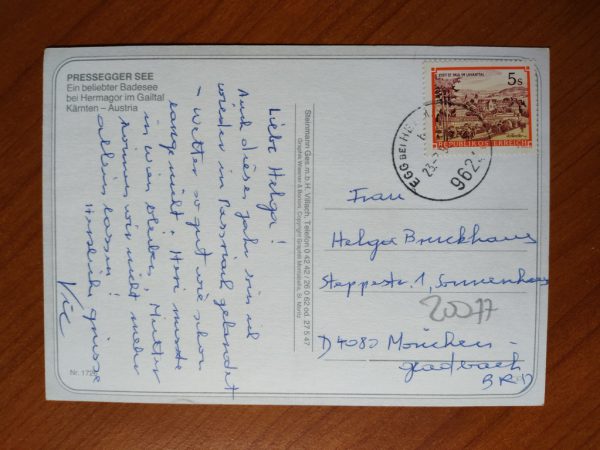 PRESSEGGER SEE
Ein beliebter Badesee
bei Hermagor im Gailtal
Kärnten – Austria
Liebe Helga!
Auch dieses Jahr bin ich
wieder in Passriach gelandet
- Wetter so gut wie schon
lange nicht. Heri musste
in Wien bleiben, Mutter
können wir nicht mehr
allein lassen!
Herzliche Grüsse
Nr. 172
Steinmann Ges. m. b. H. Villach, Telefon 0 42 42 / 26 0 62 od. 27 5 47
STIFT ST. PAUL IM LAVANTTAL
5s
REPUBLIK ÖSTERREICH
EGG BEI HE
23.
962
Frau
Helga Bruckhaus
Steppestr. 1, Sonnenhaus
20077
D 4080 München-
gladbach
BRD